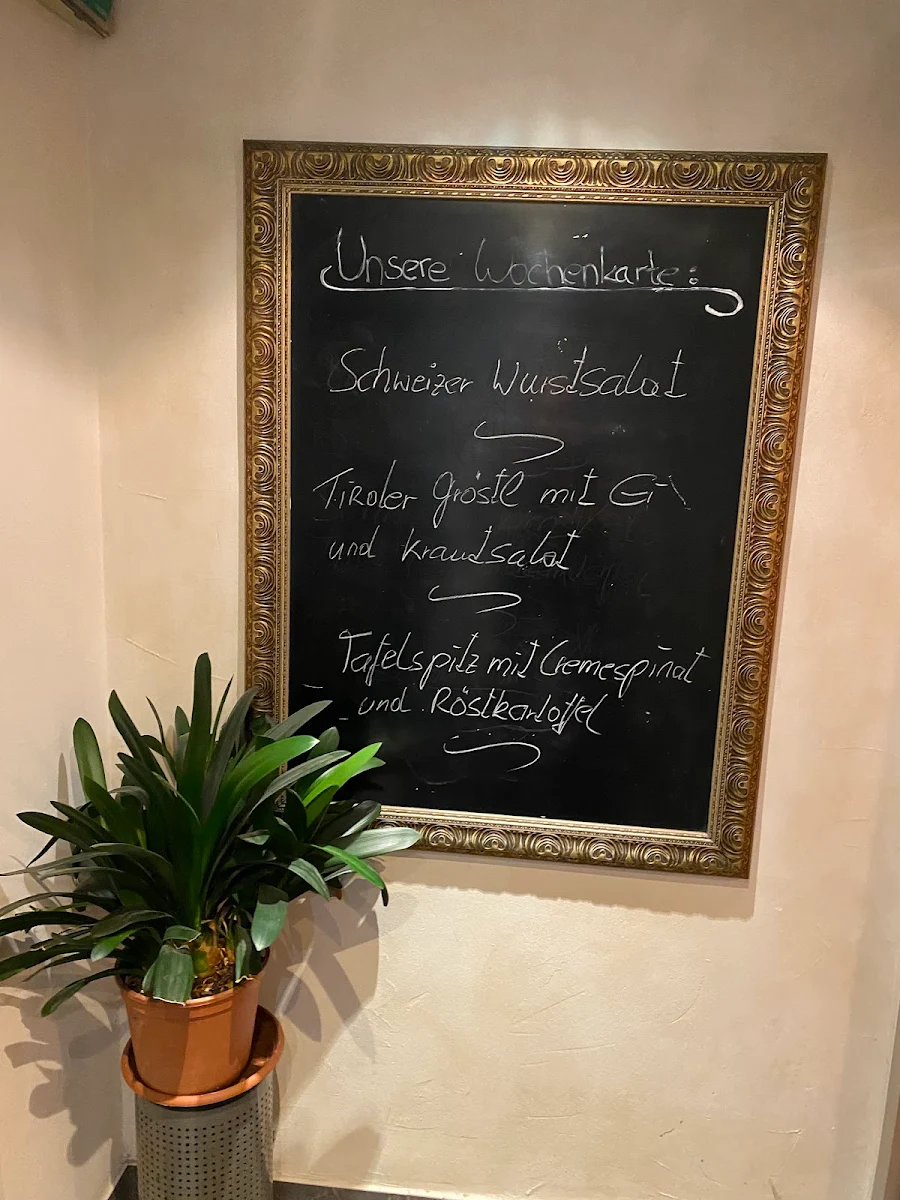 Unsere Wochenkarte:
Schweizer Wurstsalat
Tiroler Gröstl mit Ei
und Krautsalat
Tafelspitz mit Cremespinat
und Röstkartoffel